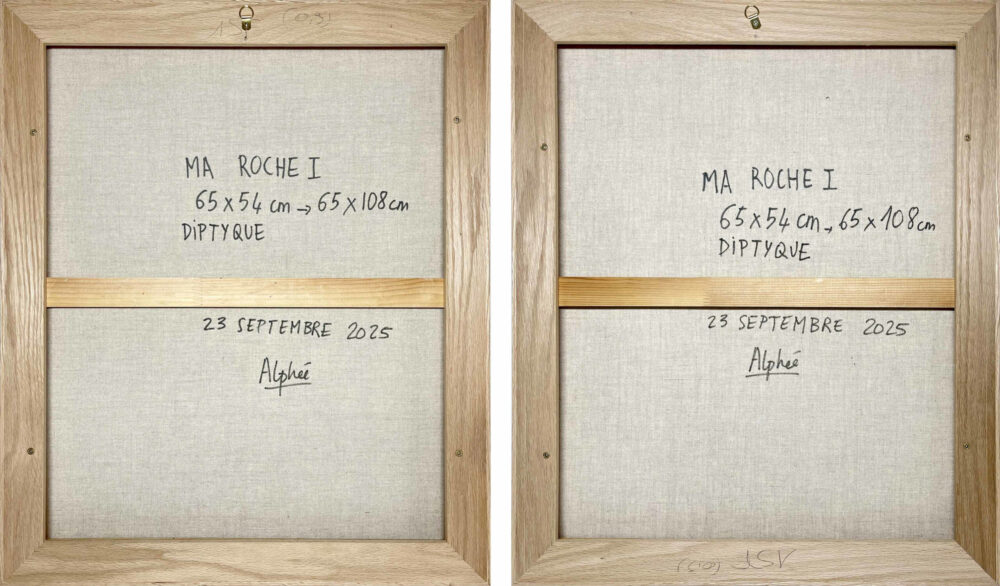 MA ROCHE I
65 x 54 cm → 65 x 108 cm
DIPTYQUE
23 SEPTEMBRE 2025
Alphéé
MA ROCHE I
65 x 54 cm → 65 x 108 cm
DIPTYQUE
23 SEPTEMBRE 2025
Alphéé